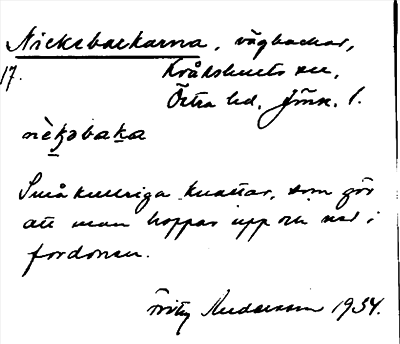 Nickebackarna, vägbackar,
17. Kråkshults sn,
Östra hd, Jönk. l.
nèk̯əbaka
Små kulliga knattar, som gör
att man hoppar upp och ned i
fordonen.
Fritz Andersson 1934.